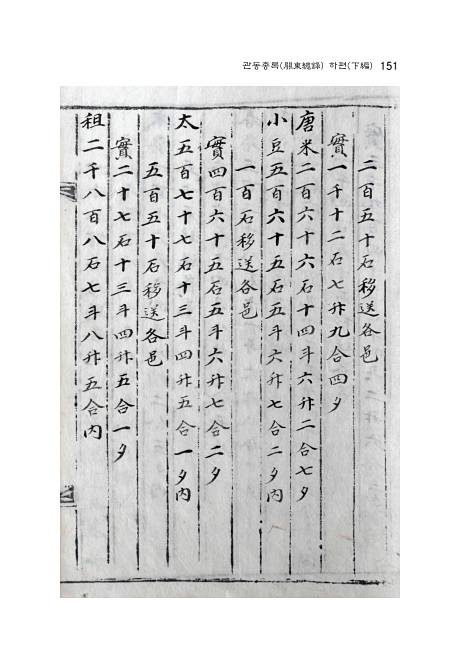 관동총록(關東總錄) 하편(下編) 151
二百五十石移送各邑
實一千十二石七升九合四夕
唐米二百六十六石十四斗六升二合七夕
小豆五百六十五石五斗六升七合二夕內
一百石移送各邑
實四百六十五石五斗六升七合二夕
太五百七十七石十三斗四升五合一夕內
五百五十石移送各邑
實二十七石十三斗四升五合一夕
租二千八百八石七斗八升五合內